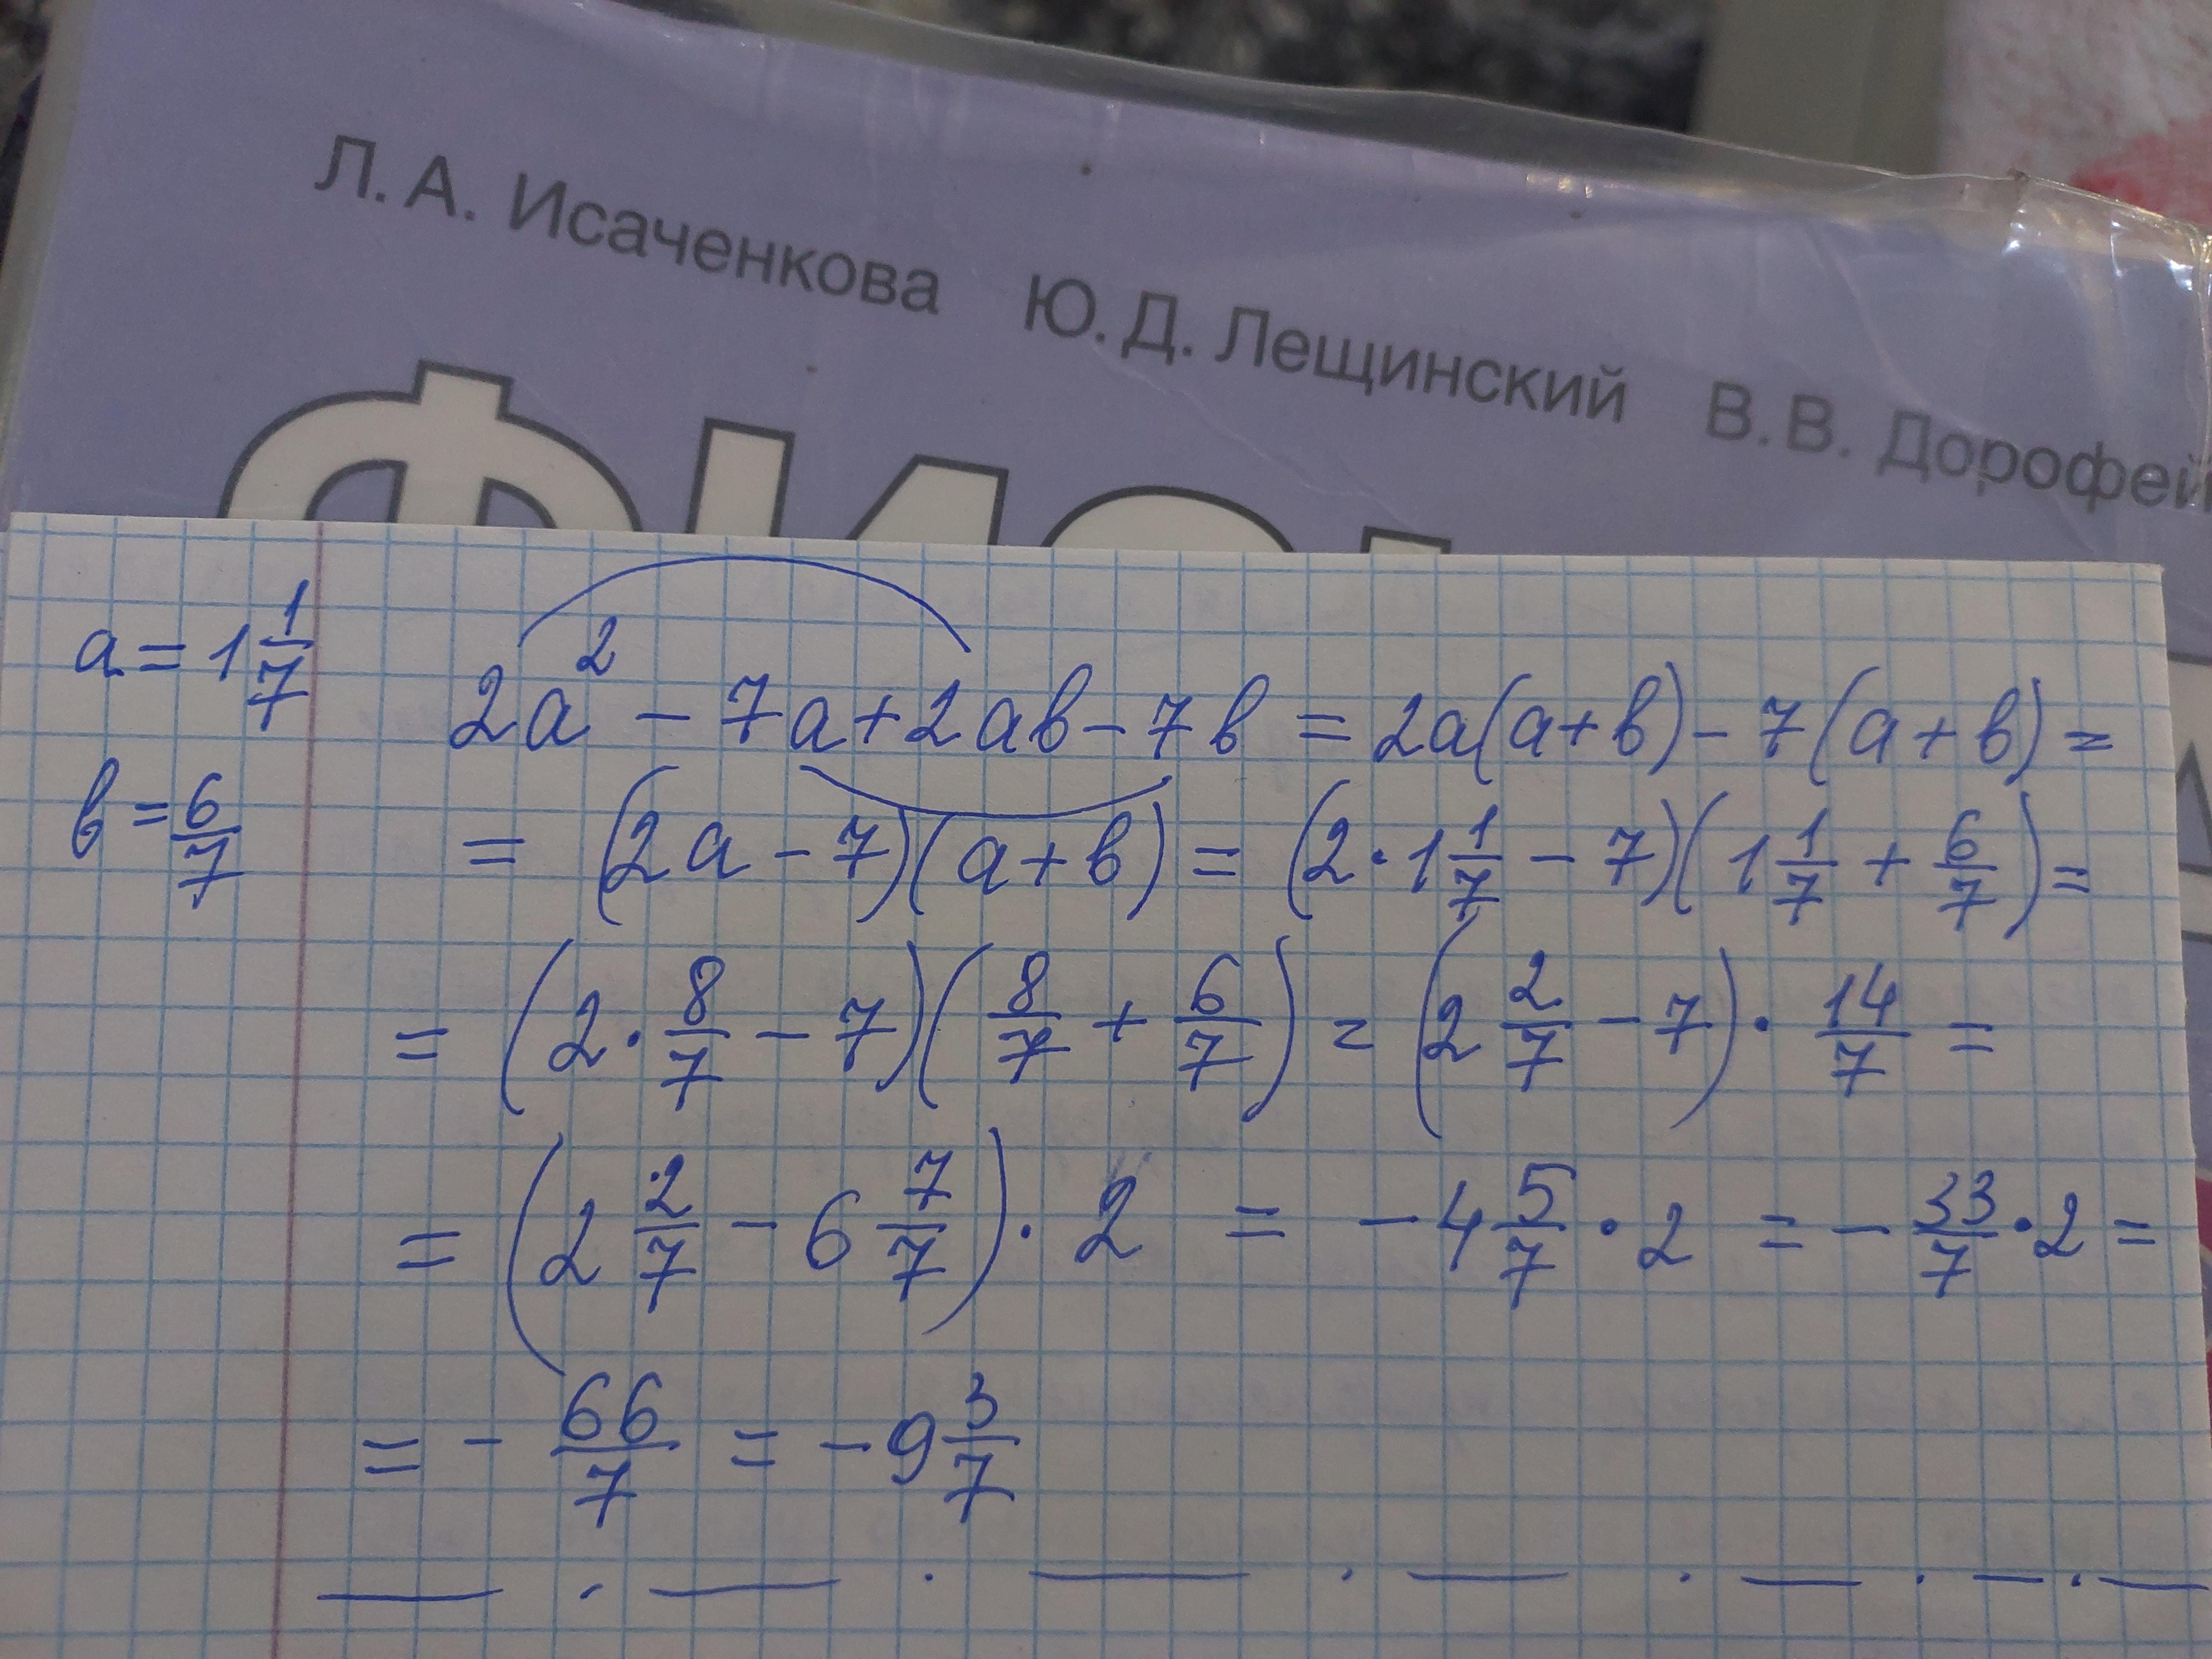 Л. А. Исаченкова Ю. Д. Лещинский В. В. Дорофей
ФИЗИ
a = 1 1/7
2a² − 7a + 2ab − 7b = 2a(a + b) − 7(a + b) =
b = 6/7
= (2a − 7)(a + b) = (2 · 1 1/7 − 7)(1 1/7 + 6/7) =
= (2 · 8/7 − 7)(8/7 + 6/7) = (2 2/7 − 7) · 14/7 =
= (2 2/7 − 6 7/7) · 2 = − 4 5/7 · 2 = − 33/7 · 2 =
= − 66/7 = − 9 3/7